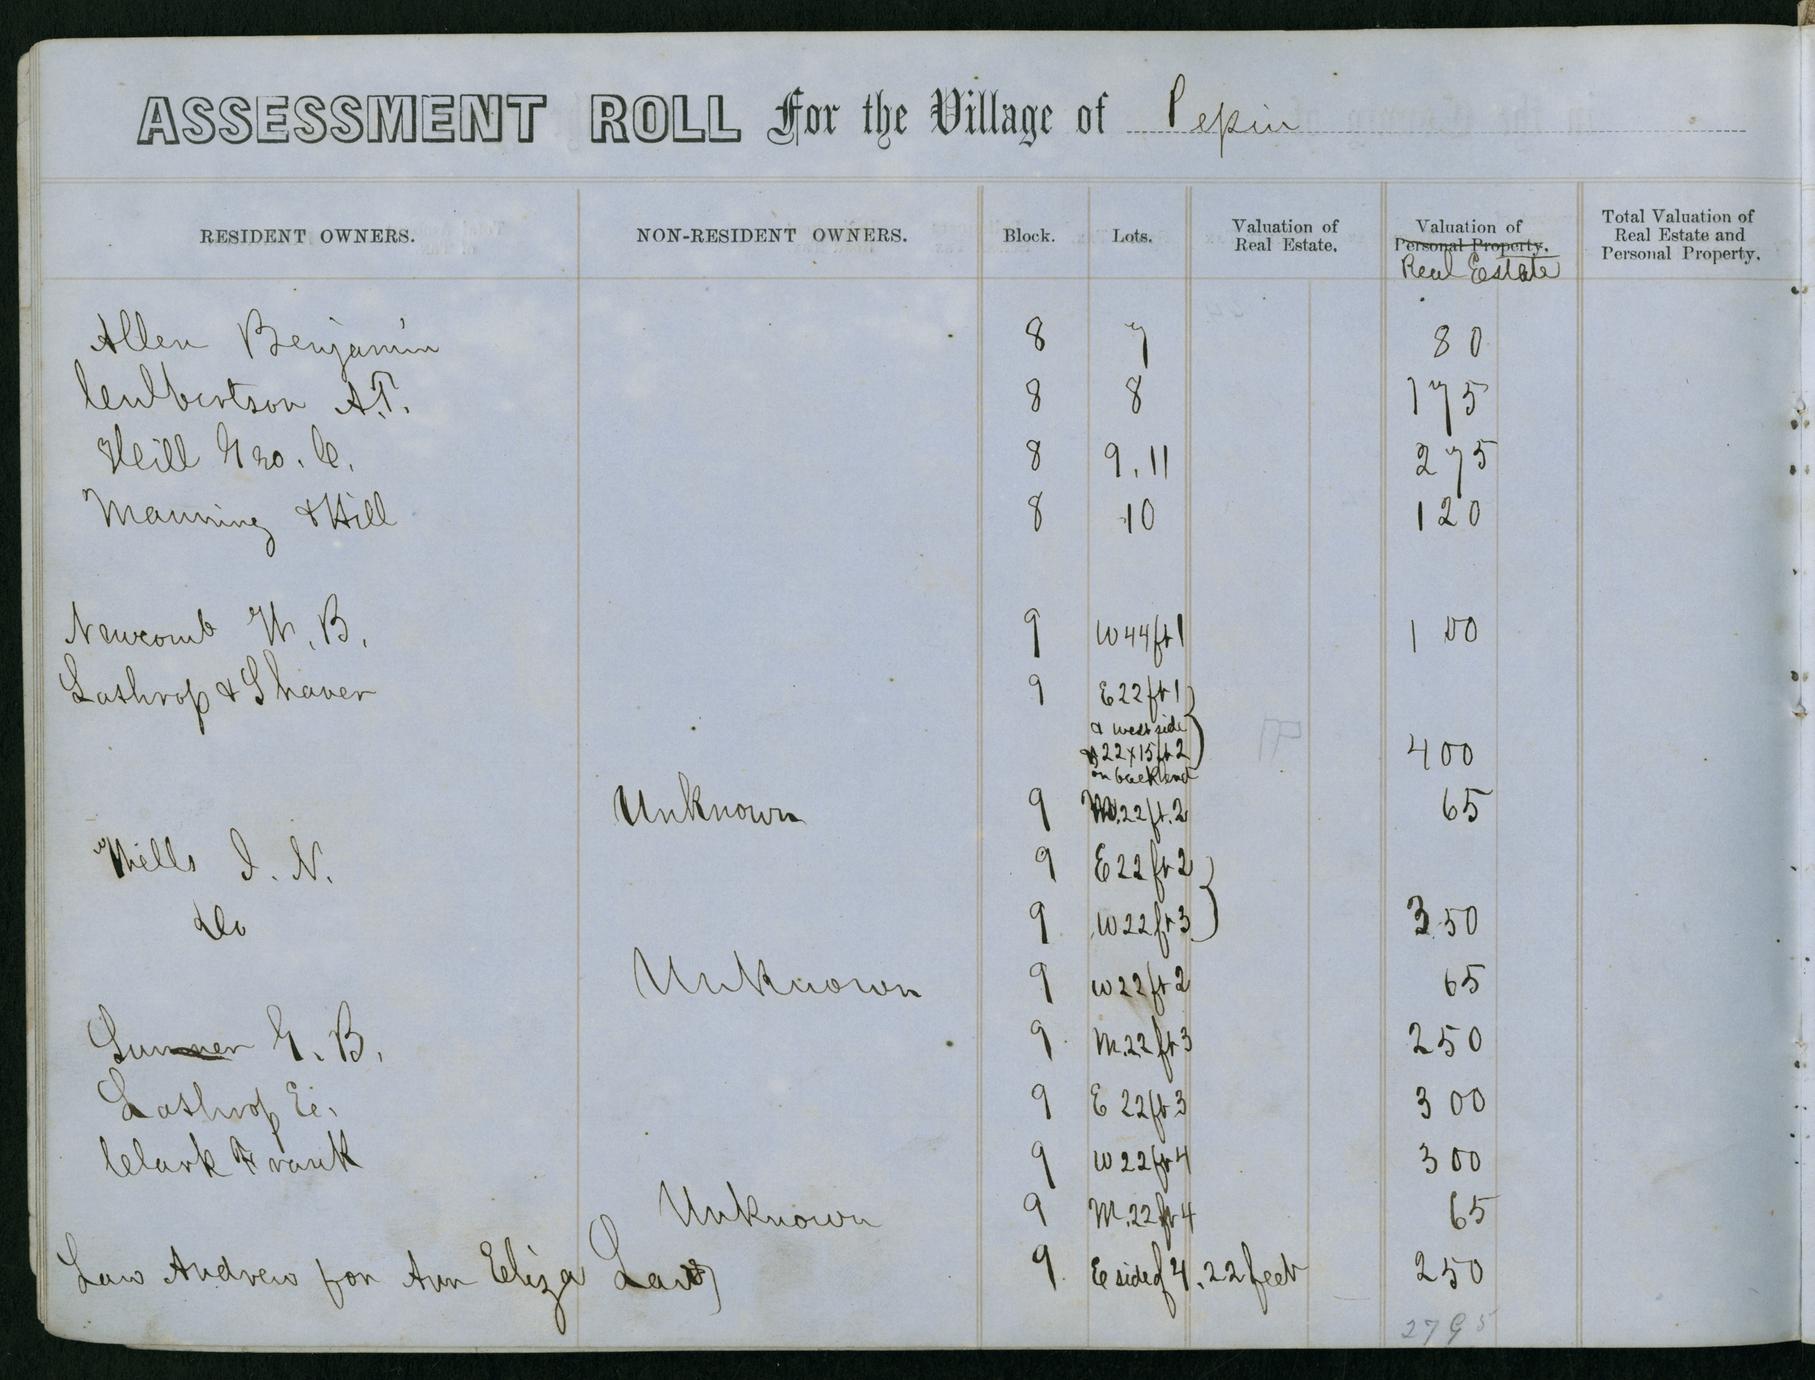 ASSESSMENT ROLL For the Village of Pepin
RESIDENT OWNERS. NON-RESIDENT OWNERS. Block. Lots. Valuation of Real Estate. Valuation of Personal Property. Real Estate Total Valuation of Real Estate and Personal Property.
Allen Benjamin 8 7 80
Culbertson A.T. 8 8 175
Hill Geo. C. 8 9, 11 275
Manning & Hill 8 10 120
Newcomb W. B. 9 W 44 ft 1 1 00
Lathrop & Shaver 9 E 22 ft 1
& west side
22 x 15 ft 2 400
on back end
Unknown 9 M. 22 ft. 2 65
Mills I. N. 9 E 22 ft 2
Do 9 W 22 ft 3 350
Unknown 9 W 22 ft 2 65
Sumner G. B. 9 M. 22 ft 3 250
Lathrop E. 9 E 22 ft 3 300
Clark Frank 9 W 22 ft 4 300
Unknown 9 M. 22 ft 4 65
Law Andrew for Ann Eliza Law 9 E side of 4. 22 feet 250
2795